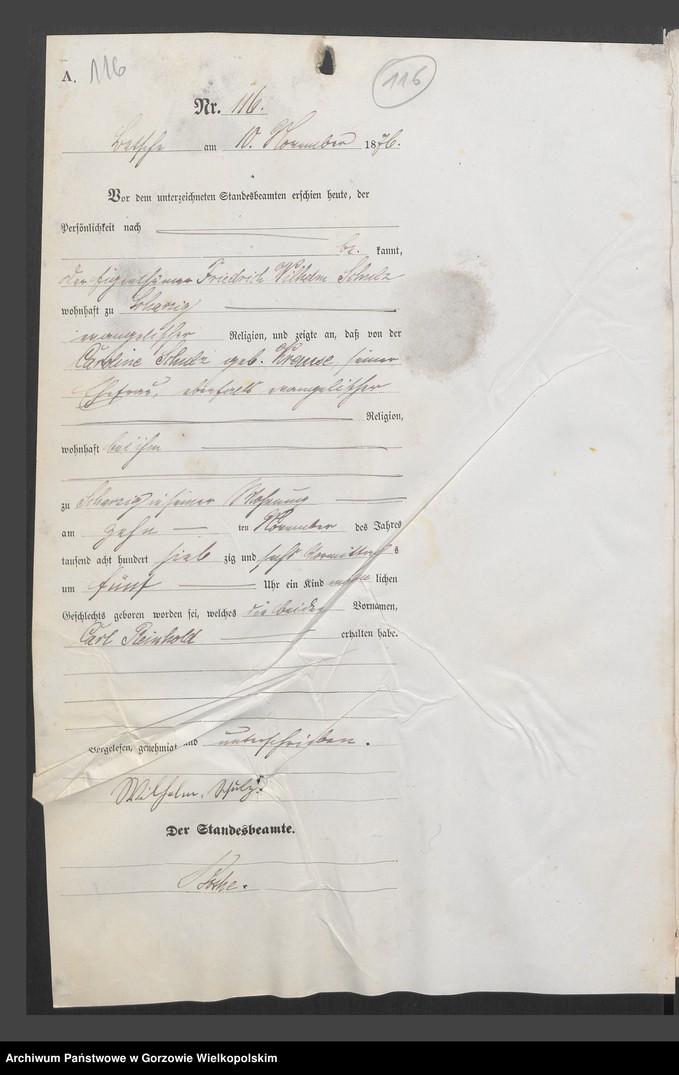 A. 116
116
Nr. 116.
Betsche am 10. November 1876.
Vor dem unterzeichneten Standesbeamten erschien heute, der
Persönlichkeit nach
be kannt,
der Eigenthümer Friedrich Wilhelm Schulz
wohnhaft zu Scharzig
evangelischer Religion, und zeigte an, daß von der
Caroline Schulz geb. Krause, seiner
Ehefrau, ebenfalls evangelischer
Religion,
wohnhaft bei ihm
zu Scharzig in seiner Wohnung
am zehn ten November des Jahres
tausend acht hundert sieb zig und sechs Vormittag s
um fünf Uhr ein Kind männ lichen
Geschlechts geboren worden sei, welches die beiden Vornamen,
Carl Reinhold erhalten habe.
Vorgelesen, genehmigt und unterschrieben.
Wilhelm Schulz
Der Standesbeamte.
Archiwum Państwowe w Gorzowie Wielkopolskim